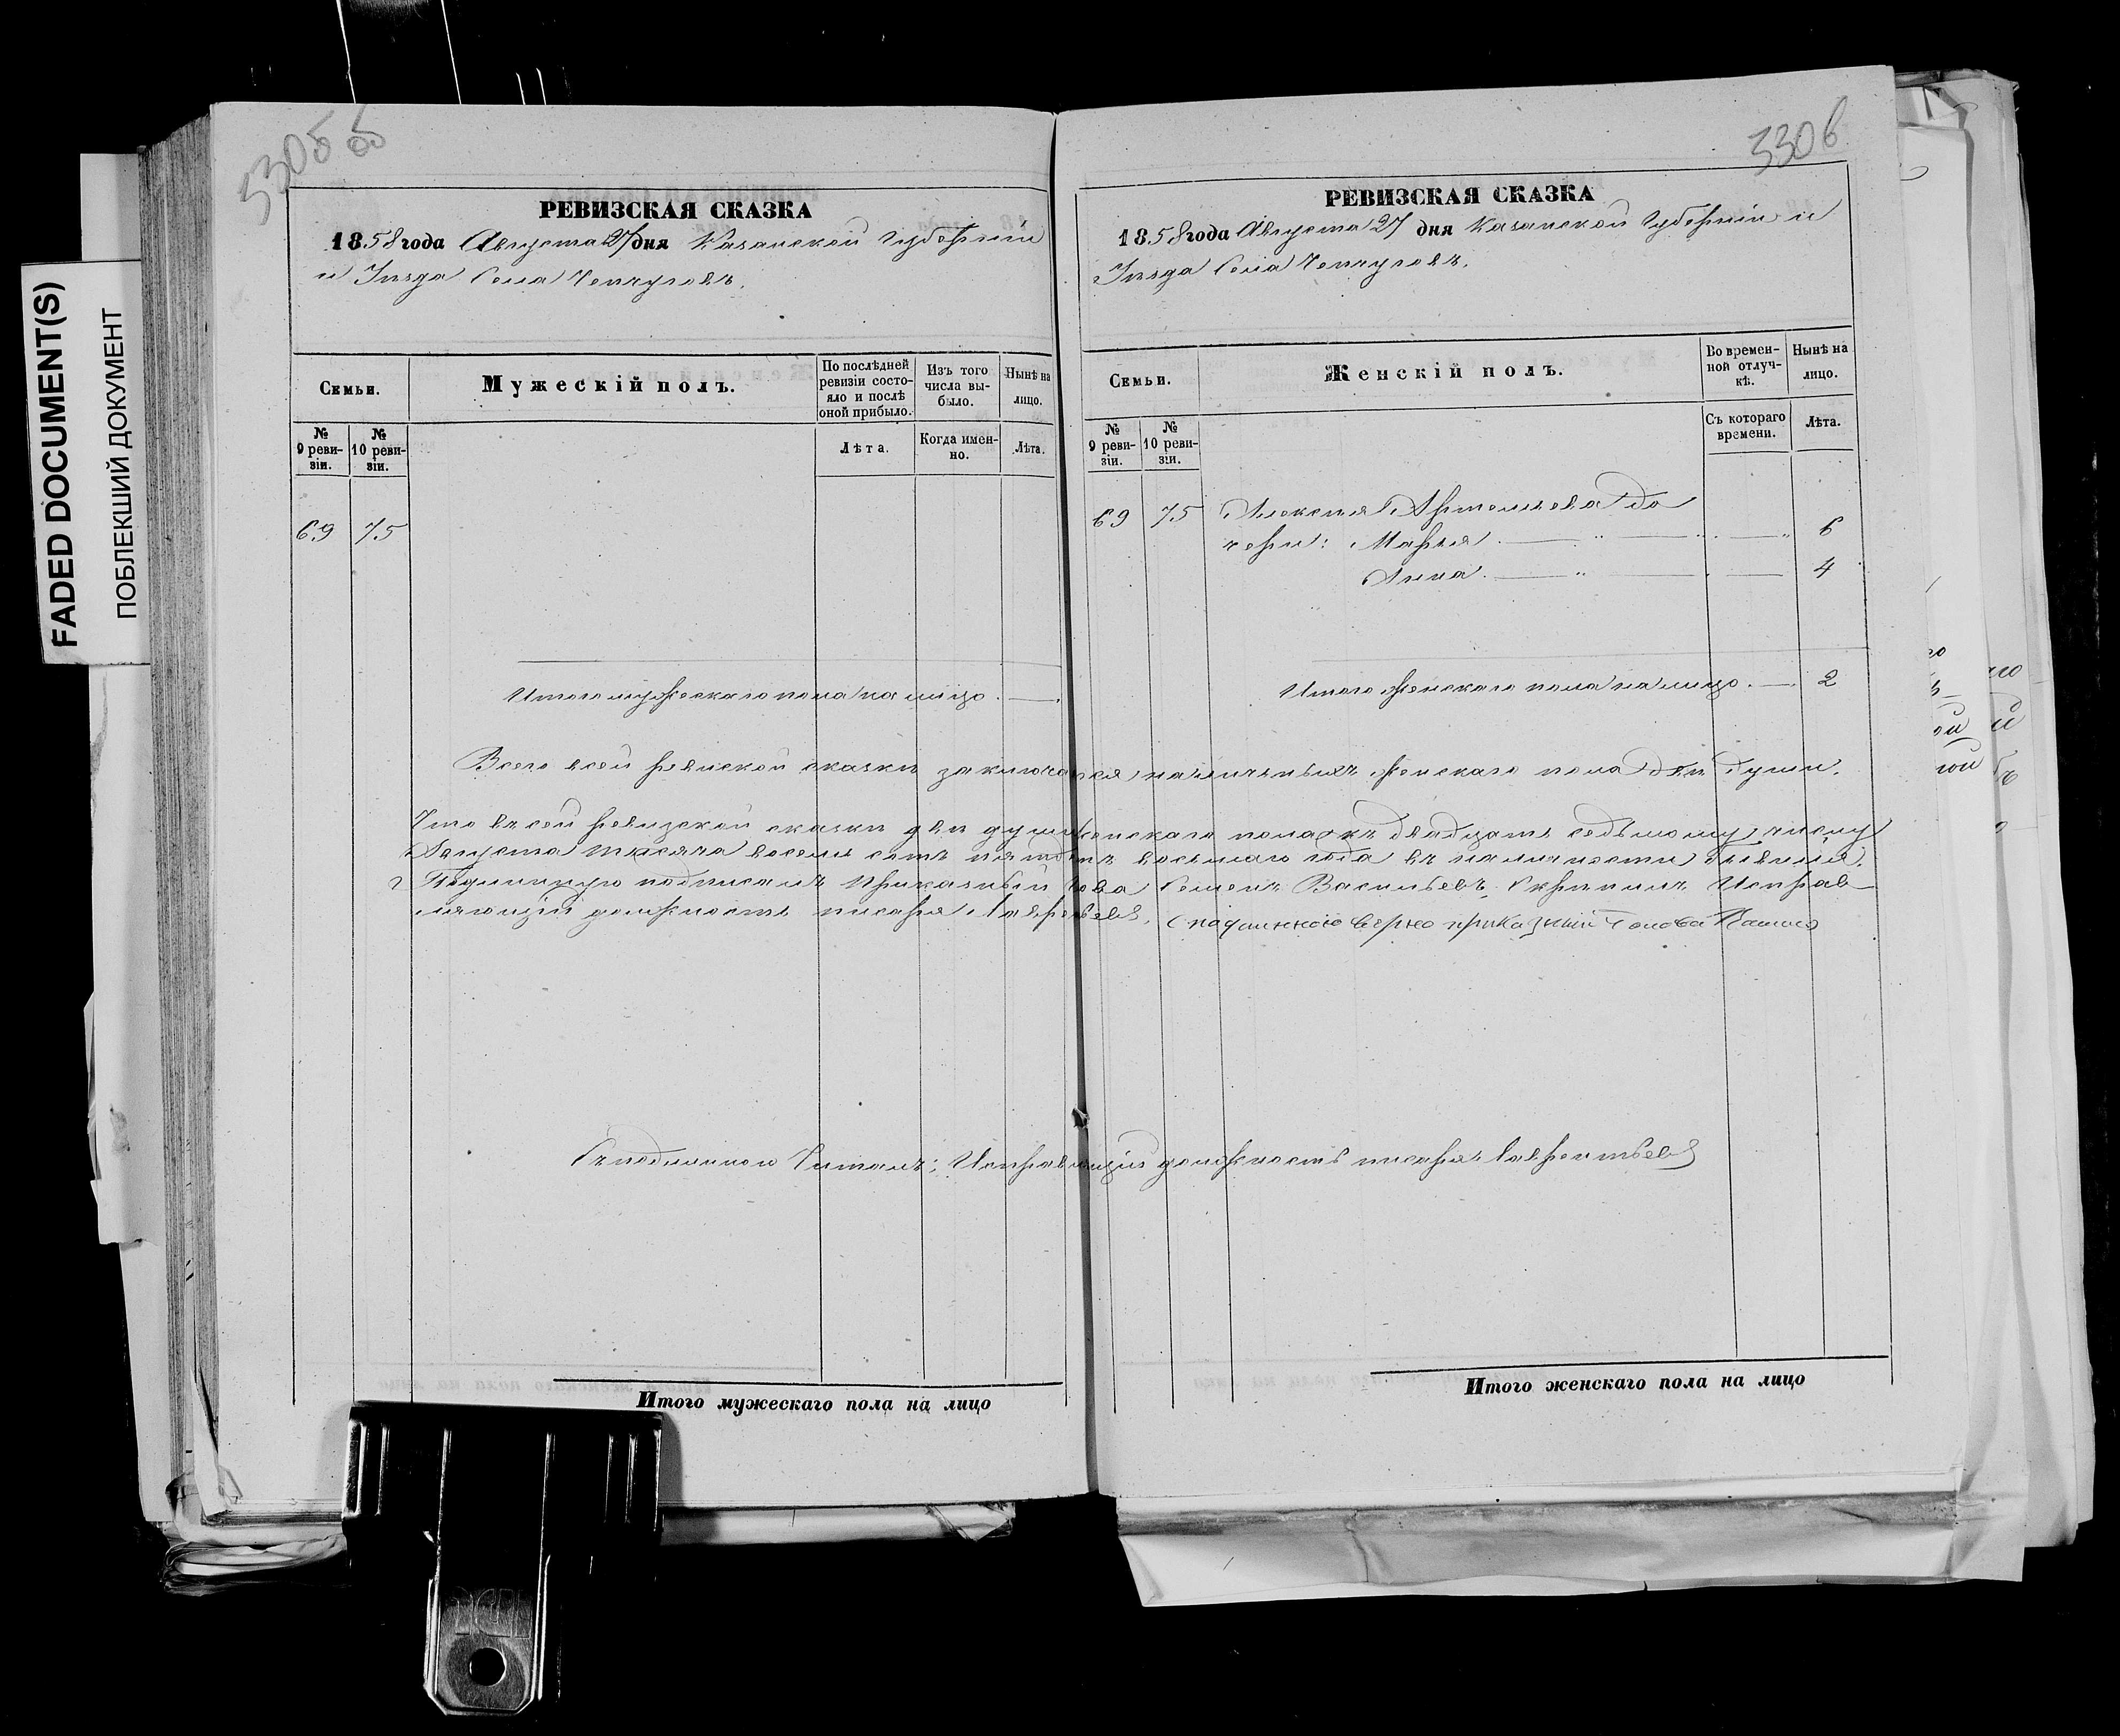 FADED DOCUMENT(S)
ПОБЛЕКШИЙ ДОКУМЕНТ
3305 об
РЕВИЗСКАЯ СКАЗКА
1858 года Августа 27 дня Казанской Губерніи
и Уѣзда Села
Семьи.
Мужескій полъ.
По послѣдней ревизіи состояло и послѣ оной прибыло.
Изъ того числа выбыло.
Нынѣ на лицо.
№ 9 ревизіи.
№ 10 ревизіи.
Лѣта.
Когда именно.
Лѣта.
69 75
Итого мужескаго пола на лицо
3306
РЕВИЗСКАЯ СКАЗКА
1858 года Августа 27 дня Казанской Губерніи и
Уѣзда Села
Семьи.
Женскій полъ.
Во временной отлучкѣ.
Нынѣ на лицо.
№ 9 ревизіи.
№ 10 ревизіи.
Съ котораго времени.
Лѣта.
69 75 Алексѣя Артемьева до
чери: Марья 6
Анна 4
Итого женскаго пола на лицо 2
Всего въ сей ревиской сказкѣ заключается наличныхъ женскаго пола двѣ души.
Что въ сей ревизской сказкѣ двѣ души женскаго пола къ двадцать седьмому числу
Августа тысяча восемь сотъ пятдесятъ восьмаго года въ наличности
Подлинную подписалъ Приказный Голова Семенъ Васильевъ Исправ
ляющій должность писаря Лаврентьевъ. С подлинною верно приказный Голова
Съ подлинною Читалъ: Исправляющій должность писаря Лаврентьевъ
Итого мужескаго пола на лицо
Итого женскаго пола на лицо